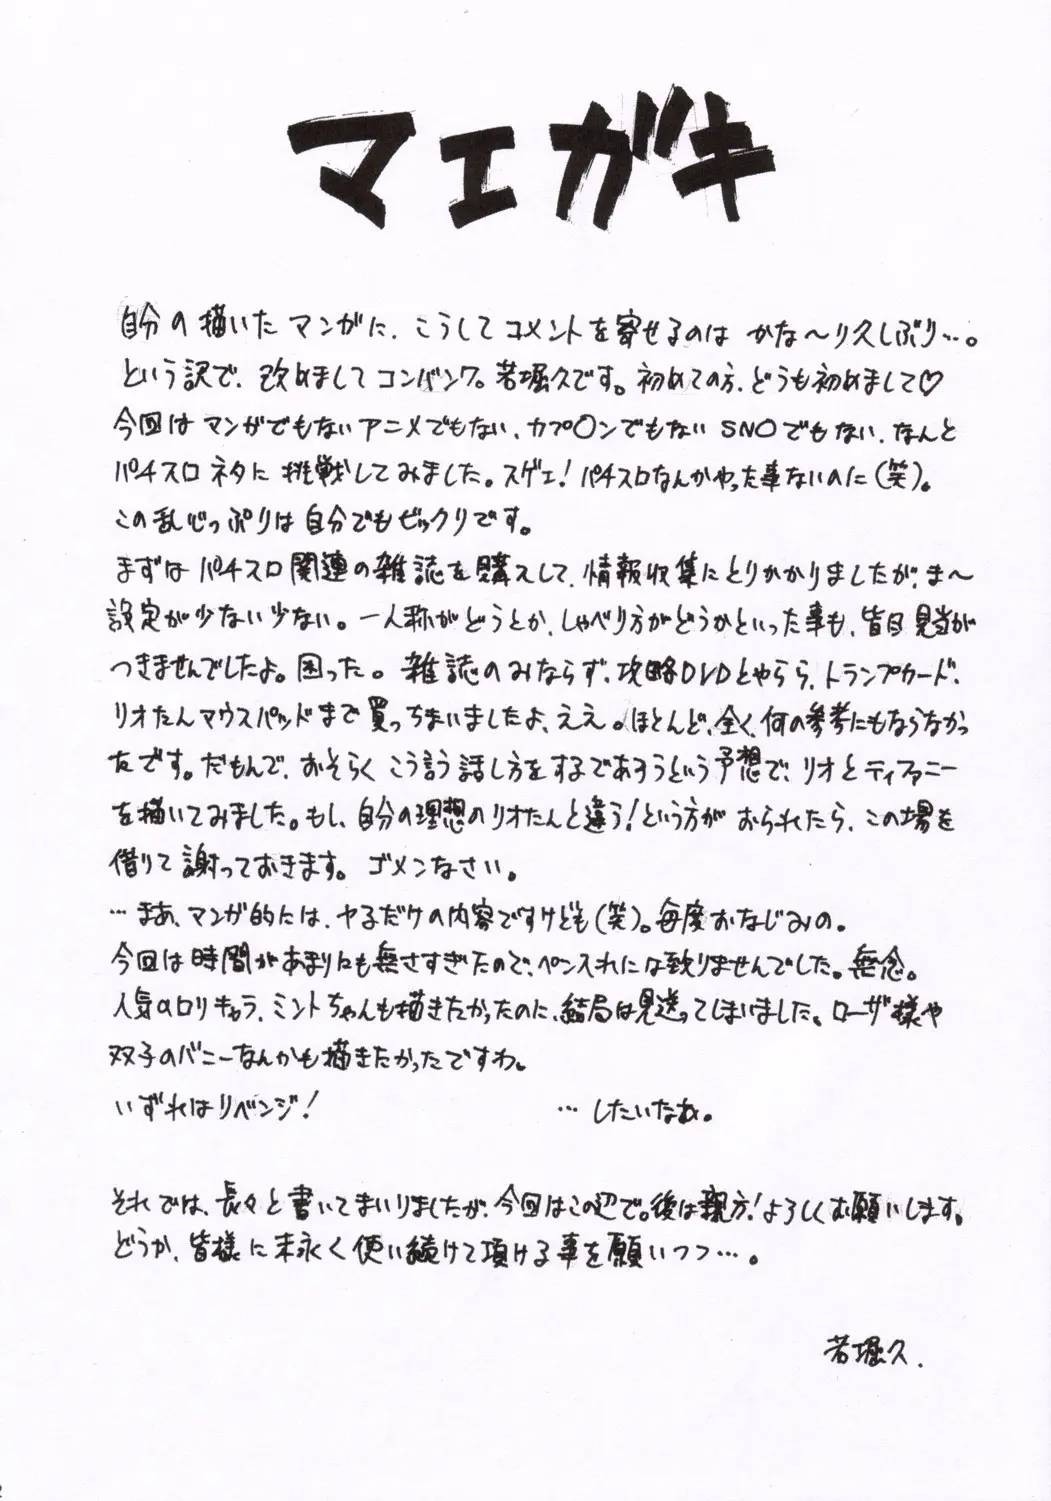 マエガキ
自分の描いたマンガに、こうしてコメントを寄せるのは かな〜り久しぶり…。
という訳で、改めましてコンバンワ。若堀久です。初めての方、どうも初めまして♡
今回は マンガでもないアニメでもない、カプ○ンでもない SNOでもない、なんと
パチスロ ネタに 挑戦してみました。スゲェ！パチスロなんかやった事ないのに（笑）。
この乱心っぷりは 自分でもビックリです。
まずは パチスロ関連の雑誌を購入して、情報収集にとりかかりましたが、ま〜
設定が少ない少ない。一人称がどうとか、しゃべり方がどうかといった事も、皆目見当が
つきませんでしたよ。困った。雑誌のみならず、攻略DVDとやらら、トランプカード、
リオたんマウスパッドまで買っちまいましたよ、ええ。ほとんど、全く、何の参考にもならなかっ
たです。だもんで、おそらく こう言う 話し方をするであろうという予想で、リオとティファニー
を描いてみました。もし、自分の理想のリオたんと違う！という方が おられたら、この場を
借りて 謝っておきます。ゴメンなさい。
…まあ、マンガ的には、ヤるだけの内容ですけども（笑）。毎度おなじみの。
今回は時間があまりにも無さすぎたので、ペン入れには至りませんでした。無念。
人気のロリキャラ、ミントちゃんも描きたかったのに、結局は見送ってしまいました。ローザ様や
双子のバニーなんかも描きたかったですわ。
いずれはリベンジ！ …したいなぁ。
それでは、長々と書いてまいりましたが、今回はこの辺で。後は親方！よろしくお願いします。
どうか、皆様に末永く使い続けて頂ける事を願いつつ…。
若堀久.
2